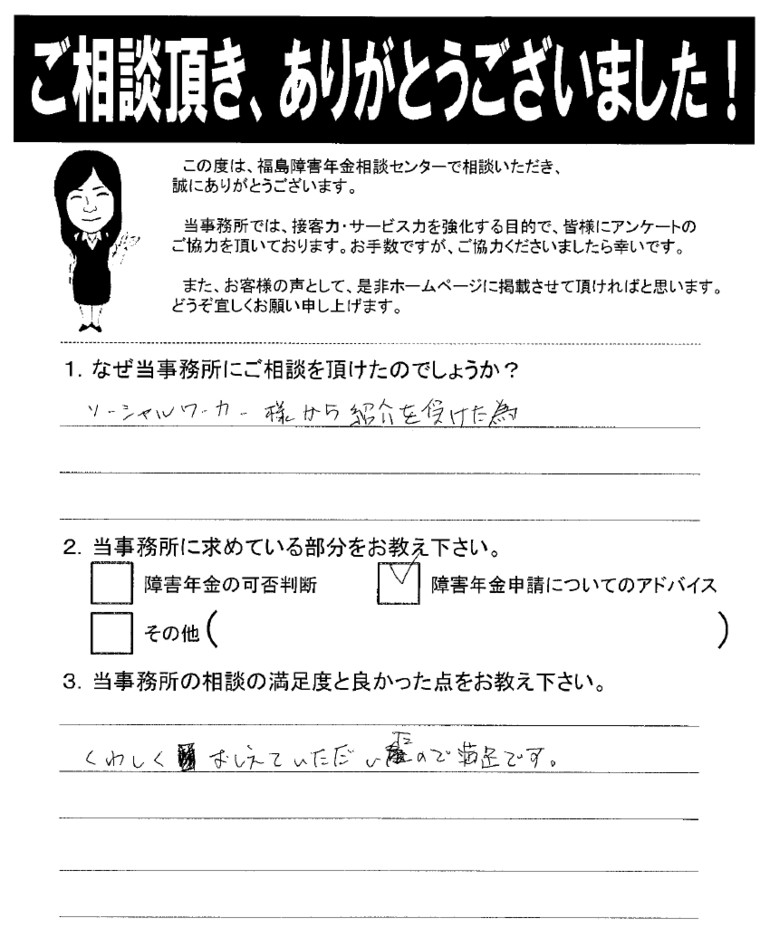 ご相談頂き、ありがとうございました！
この度は、福島障害年金相談センターで相談いただき、
誠にありがとうございます。
当事務所では、接客力・サービス力を強化する目的で、皆様にアンケートの
ご協力を頂いております。お手数ですが、ご協力くださいましたら幸いです。
また、お客様の声として、是非ホームページに掲載させて頂ければと思います。
どうぞ宜しくお願い申し上げます。
1．なぜ当事務所にご相談を頂けたのでしょうか？
ソーシャルワーカー様から紹介を受けた為
2．当事務所に求めている部分をお教え下さい。
障害年金の可否判断　障害年金申請についてのアドバイス
その他（　）
3．当事務所の相談の満足度と良かった点をお教え下さい。
くわしくおしえていただいたので満足です。